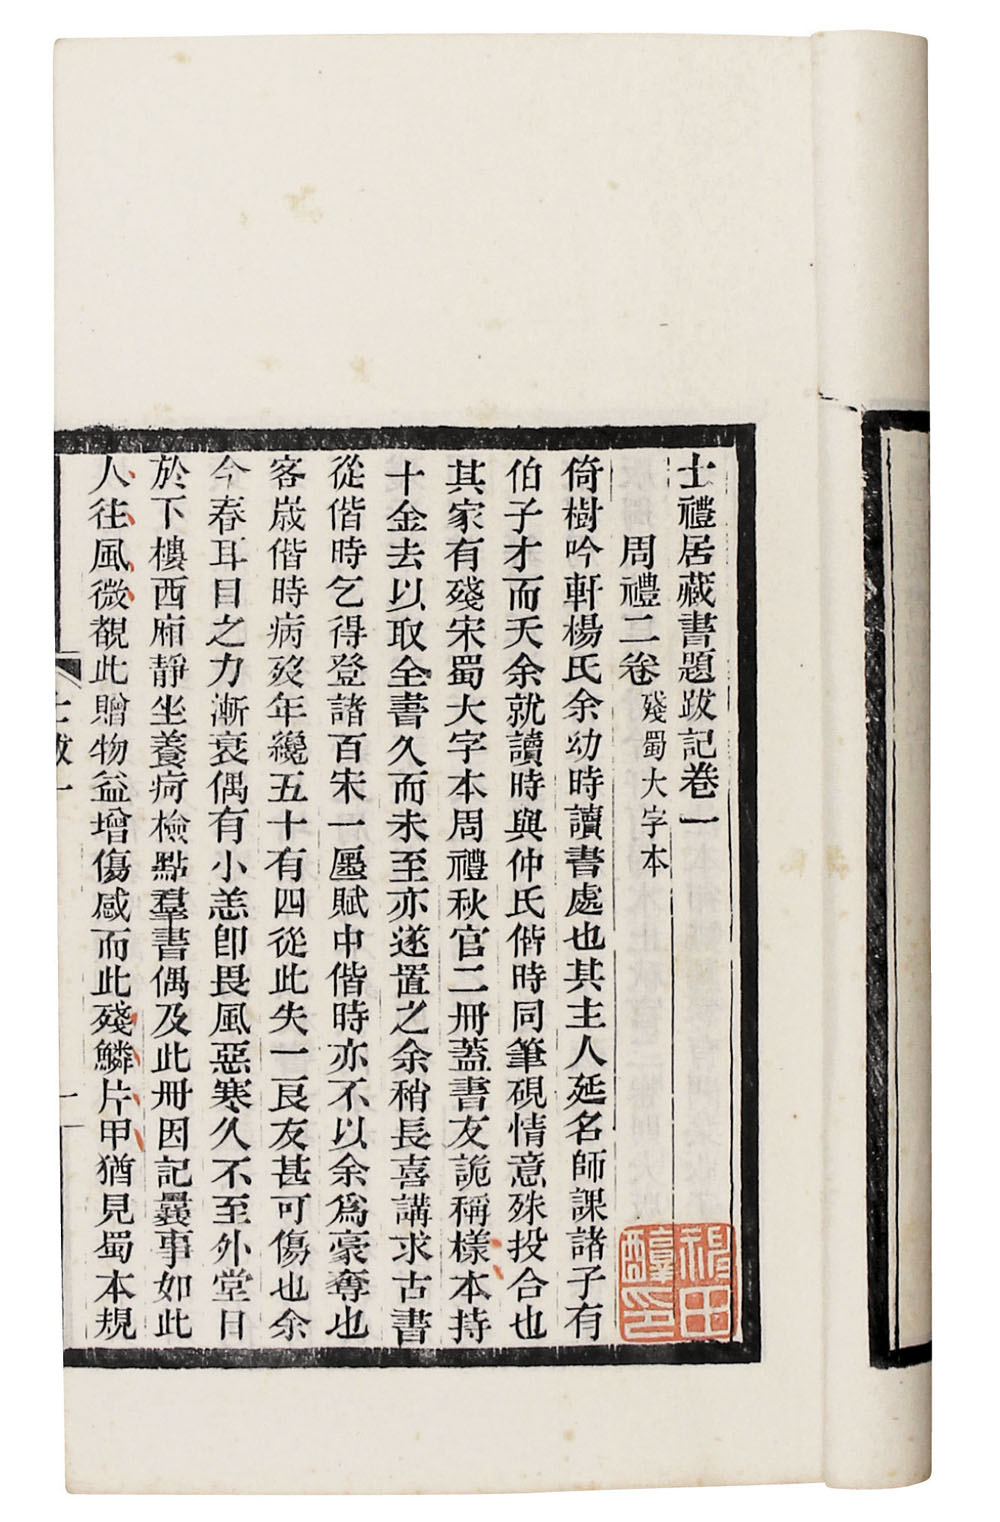 士禮居藏書題跋記卷一
周禮二卷 殘蜀大字本
倚樹吟軒楊氏余幼時讀書處也其主人延名師課諸子有
伯子才而夭余就讀時與仲氏偕時同筆硯情意殊投合也
其家有殘宋蜀大字本周禮秋官二冊蓋書友詭稱樣本持
十金去以取全書久而未至亦遂置之余稍長喜講求古書
從偕時乞得登諸百宋一廛賦中偕時亦不以余爲豪奪也
客歲偕時病歿年纔五十有四從此失一良友甚可傷也余
今春耳目之力漸衰偶有小恙卽畏風惡寒久不至外堂日
於下樓西廂靜坐養疴檢點羣書偶及此冊因記曩事如此
人往風微覩此贈物益增傷感而此殘鱗片甲猶見蜀本規